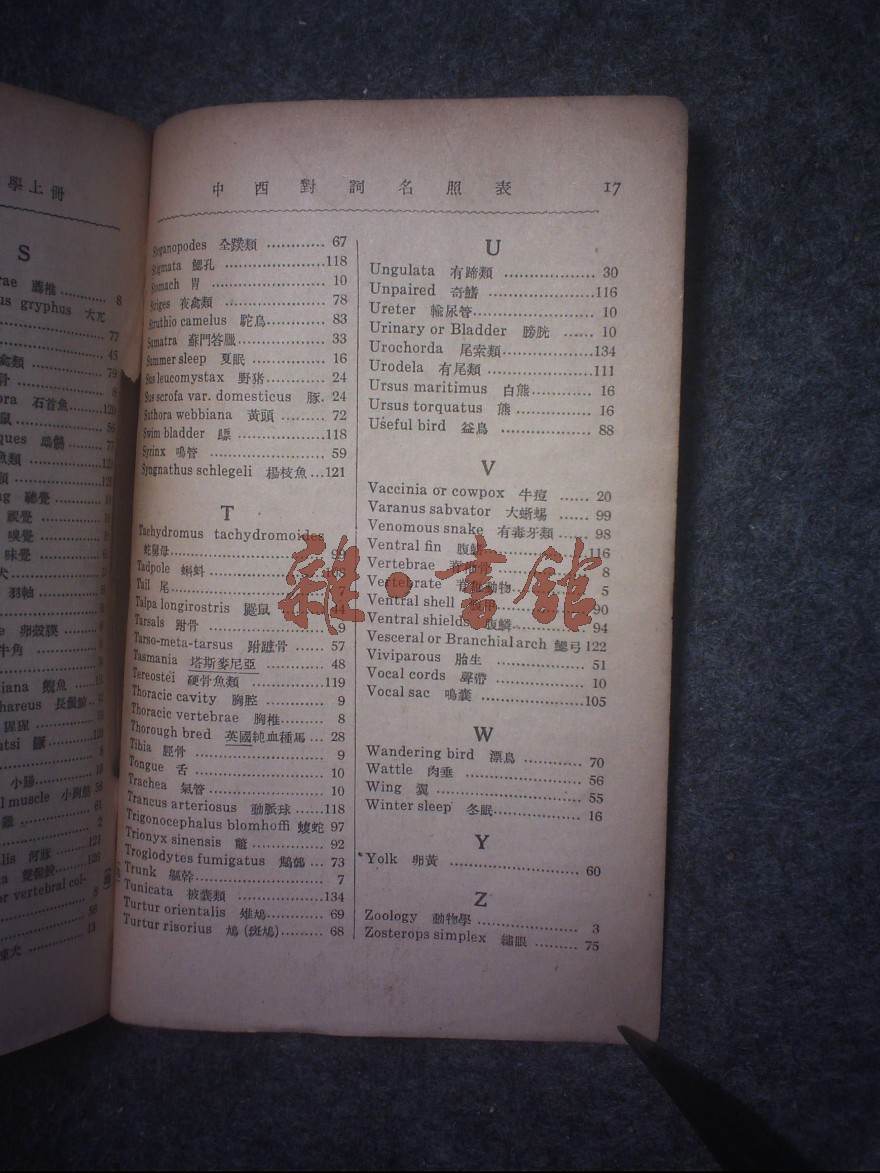 學上冊
S
rae 薦椎 ............ 8
us gryphus 大兀
77
45
禽類 ............ 79
骨 ............ 8
ora 石首魚 ...... 120
鼠 ............ 56
ques 鴟鵂 ...... 77
魚類
類
ng 聽覺
視覺
嗅覺
味覺
犬
羽軸
e 卵殼膜
牛角
iana 鯢魚
猩猩
小腸
l muscle
61
2
alis 河豚 ...... 121
a
or vertebral col-
8
56
13
中西對詞名照表 17
Steganopodes 全蹼類 ............ 67
Stigmata 鰓孔 ............ 118
Stomach 胃 ............ 10
Striges 夜禽類 ............ 78
Struthio camelus 駝鳥 ............ 83
Sumatra 蘇門答臘 ............ 33
Summer sleep 夏眠 ............ 16
Sus leucomystax 野猪 ............ 24
Sus scrofa var. domesticus 豚. 24
Suthora webbiana 黃頭 ......... 72
Swim bladder 鰾 ............ 118
Syrinx 鳴管 ............ 59
Syngnathus schlegeli 楊枝魚 ...121
T
Tachydromus tachydromoides
蛇舅母 ............ 99
Tadpole 蝌蚪 ............ 103
Tail 尾 ............ 7
Talpa longirostris 鼴鼠 ......... 44
Tarsals 跗骨 ............ 9
Tarso-meta-tarsus 跗蹠骨 ...... 57
Tasmania 塔斯麥尼亞 ............ 48
Tereostei 硬骨魚類 ............ 119
Thoracic cavity 胸腔 ............ 9
Thoracic vertebrae 胸椎 ......... 8
Thorough bred 英國純血種馬 ... 28
Tibia 脛骨 ............ 9
Tongue 舌 ............ 10
Trachea 氣管 ............ 10
Trancus arteriosus 動脈球 ......118
Trigonocephalus blomhoffi 蝮蛇 97
Trionyx sinensis 鼈 ............ 92
Troglodytes fumigatus 鷦鷯 ... 73
Trunk 軀幹 ............ 7
Tunicata 被囊類 ............ 134
Turtur orientalis 雉鳩 ............ 69
Turtur risorius 鳩 (斑鳩) ......... 68
U
Ungulata 有蹄類 ............ 30
Unpaired 奇鰭 ............ 116
Ureter 輸尿管 ............ 10
Urinary or Bladder 膀胱 ...... 10
Urochorda 尾索類 ............ 134
Urodela 有尾類 ............ 111
Ursus maritimus 白熊 ............ 16
Ursus torquatus 熊 ............ 16
Useful bird 益鳥 ............ 88
V
Vaccinia or cowpox 牛痘 ...... 20
Varanus sabvator 大蜥蜴 ...... 99
Venomous snake 有毒牙類 ...... 98
Ventral fin 腹鰭 ............ 116
Vertebrae 脊椎骨 ............ 8
Vertebrate 脊椎動物 ............ 5
Ventral shell 腹甲 ............ 90
Ventral shields 腹鱗 ............ 94
Vesceral or Branchial arch 鰓弓 122
Viviparous 胎生 ............ 51
Vocal cords 聲帶 ............ 10
Vocal sac 鳴囊 ............ 105
W
Wandering bird 漂鳥 ............ 70
Wattle 肉垂 ............ 56
Wing 翼 ............ 55
Winter sleep 冬眠 ............ 16
Y
Yolk 卵黃 ............ 60
Z
Zoology 動物學 ............ 3
Zosterops simplex 繡眼 ......... 75
雜·書館